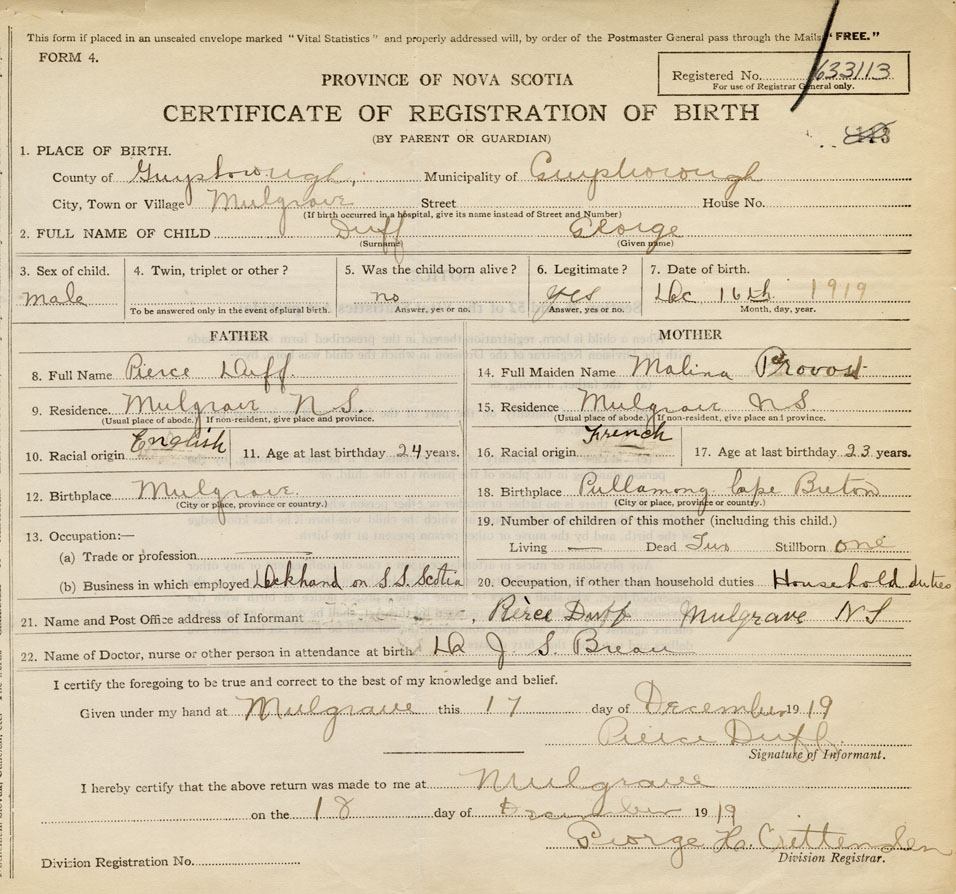 This form if placed in an unsealed envelope marked "Vital Statistics" and properly addressed will, by order of the Postmaster General pass through the Mails "FREE."
FORM 4.
Registered No. 633113
For use of Registrar General only.
PROVINCE OF NOVA SCOTIA
CERTIFICATE OF REGISTRATION OF BIRTH
(BY PARENT OR GUARDIAN)
1. PLACE OF BIRTH.
County of Guysborough, Municipality of Guysborough
City, Town or Village Mulgrave Street House No.
(If birth occurred in a hospital, give its name instead of Street and Number)
2. FULL NAME OF CHILD Duff George
(Surname) (Given name)
3. Sex of child. 4. Twin, triplet or other? 5. Was the child born alive? 6. Legitimate? 7. Date of birth.
Male no yes Dec 16th 1919
To be answered only in the event of plural birth. Answer, yes or no. Answer, yes or no. Month, day, year.
FATHER MOTHER
8. Full Name Pierce Duff. 14. Full Maiden Name Malina Provost
9. Residence. Mulgrave N S. 15. Residence Mulgrave N S.
(Usual place of abode. If non-resident, give place and province. (Usual place of abode. If non-resident, give place and province.
10. Racial origin English 11. Age at last birthday 24 years. 16. Racial origin French 17. Age at last birthday 23 years.
12. Birthplace Mulgrave. 18. Birthplace Pullamong Cape Breton
(City or place, province or country.) (City or place, province or country.)
13. Occupation:— 19. Number of children of this mother (including this child.)
(a) Trade or profession Living — Dead Two Stillborn one
(b) Business in which employed Deckhand on S.S. Scotia 20. Occupation, if other than household duties Household duties
21. Name and Post Office address of Informant Pierce Duff Mulgrave N S
22. Name of Doctor, nurse or other person in attendance at birth Dr J. S. Brean
I certify the foregoing to be true and correct to the best of my knowledge and belief.
Given under my hand at Mulgrave this 17 day of December 1919
Pierce Duff.
Signature of Informant.
I hereby certify that the above return was made to me at Mulgrave
on the 18 day of December 1919
George H. Crittenden
Division Registration No. Division Registrar.